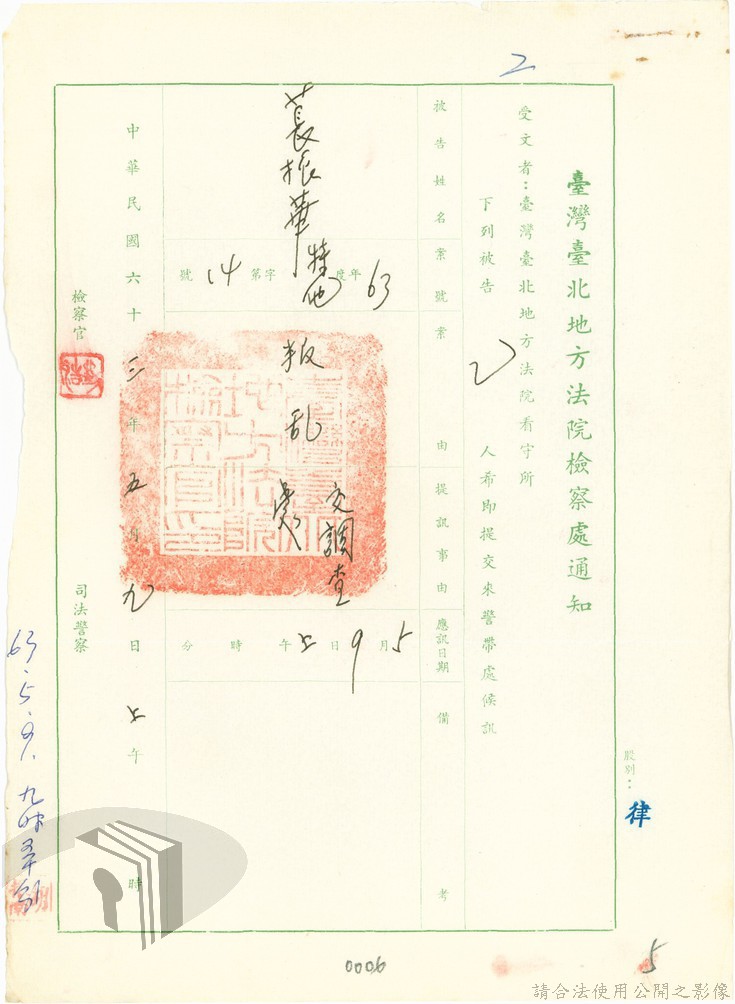 2
臺灣臺北地方法院檢察處通知
受文者：臺灣臺北地方法院看守所
下列被告乙人希即提交來警帶處候訊
被告姓名
案號
案由
提訊事由
應訊日期
備考
振華
63年度特他字第14號
叛乱
交調查
5月9日上午 時 分
中華民國六十三年五月九日上午 時
檢察官
司法警察
63.5.9.
股別：律
0006
5
請合法使用公開之影像